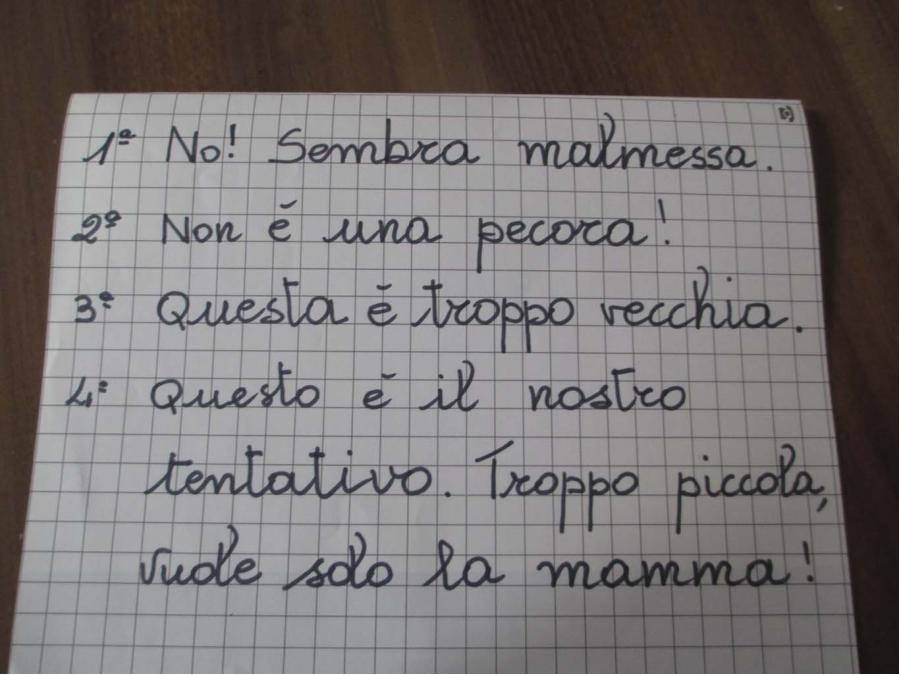 1º No! Sembra malmessa.
2º Non è una pecora!
3º Questa è troppo vecchia.
4º Questo è il nostro
tentativo. Troppo piccola,
vuole solo la mamma!